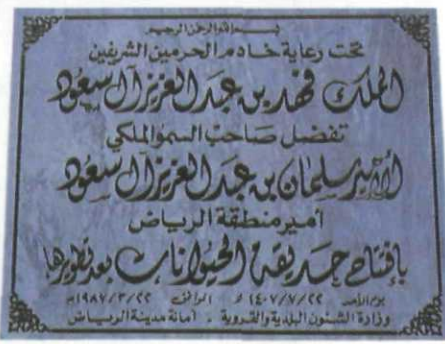 بسم الله الرحمن الرحيم
تحت رعاية خادم الحرمين الشريفين
الملك فهد بن عبد العزيز آل سعود
تفضل صاحب السمو الملكي
الأمير سلمان بن عبد العزيز آل سعود
أمير منطقة الرياض
بافتتاح حديقة الحيوانات بعد تطويرها
يوم الأحد ١٤٠٧/٧/٢٢ هـ الموافق ١٩٨٧/٣/٢٢م
وزارة الشئون البلدية والقروية . أمانة مدينة الرياض